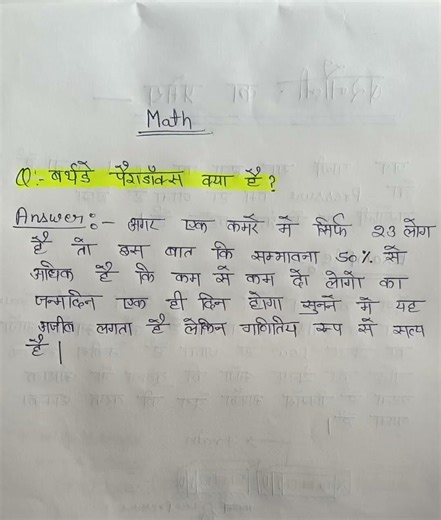 Math
Q:- बर्थडे पैराडॉक्स क्या है ?
Answer:- अगर एक कमरे में सिर्फ 23 लोग
है तो इस बात कि सम्भावना 50% से
अधिक है कि कम से कम दो लोगो का
जन्मदिन एक ही दिन होगा सुनने में यह
अजीब लगता है लेकिन गणितिय रूप से सत्य
है |